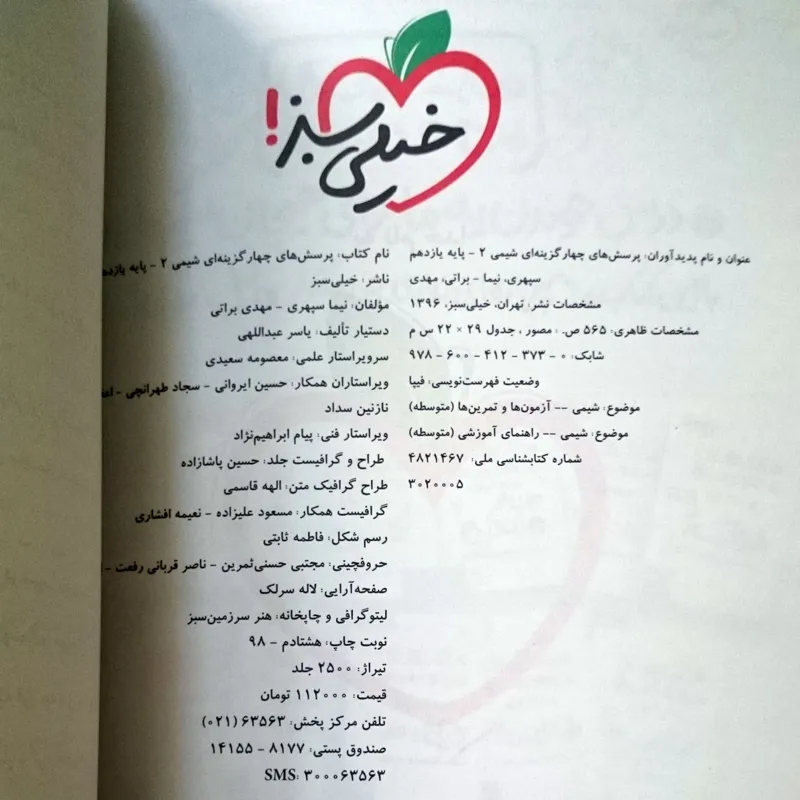 خیلی سبز!
عنوان و نام پدیدآوران: پرسش‌های چهارگزینه‌ای شیمی ۲ - پایه یازدهم
سپهری، نیما - براتی، مهدی
مشخصات نشر: تهران، خیلی‌سبز، ۱۳۹۶
مشخصات ظاهری: ۵۶۵ ص. : مصور ، جدول ۲۹ × ۲۲ س م
شابک: ۰ - ۳۷۳ - ۴۱۲ - ۶۰۰ - ۹۷۸
وضعیت فهرست‌نویسی: فیپا
موضوع: شیمی -- آزمون‌ها و تمرین‌ها (متوسطه)
موضوع: شیمی -- راهنمای آموزشی (متوسطه)
شماره کتابشناسی ملی: ۴۸۲۱۴۶۷
۳۰۲۰۰۰۵
نام کتاب: پرسش‌های چهارگزینه‌ای شیمی ۲ - پایه یازدهم
ناشر: خیلی‌سبز
مؤلفان: نیما سپهری - مهدی براتی
دستیار تألیف: یاسر عبداللهی
سرویراستار علمی: معصومه سعیدی
ویراستاران همکار: حسین ایروانی - سجاد طهرانچی -
نازنین سداد
ویراستار فنی: پیام ابراهیم‌نژاد
طراح و گرافیست جلد: حسین پاشازاده
طراح گرافیک متن: الهه قاسمی
گرافیست همکار: مسعود علیزاده - نعیمه افشاری
رسم شکل: فاطمه ثابتی
حروفچینی: مجتبی حسنی‌ثمرین - ناصر قربانی رفعت -
صفحه‌آرایی: لاله سرلک
لیتوگرافی و چاپخانه: هنر سرزمین‌سبز
نوبت چاپ: هشتادم - ۹۸
تیراژ: ۲۵۰۰ جلد
قیمت: ۱۱۲۰۰۰ تومان
تلفن مرکز پخش: ۶۳۵۶۳ (۰۲۱)
صندوق پستی: ۸۱۷۷ - ۱۴۱۵۵
SMS: ۳۰۰۰۶۳۵۶۳